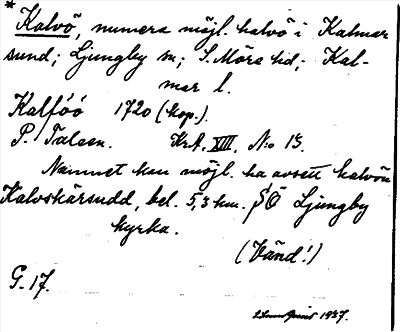 * Kalvö, numera möjl. halvö i Kalmar
sund; Ljungby sn; S. Möre hd; Kal-
mar l.
Kalföö 1720 (kop.)
P. Talaen. Kr.A. XIII. N:o 13.
Namnet kan möjl. ha avsett halvön
Kalvskärsudd, bel. 5,3 km. SÖ Ljungby
kyrka.
(Vänd!)
G. 17.
1937.